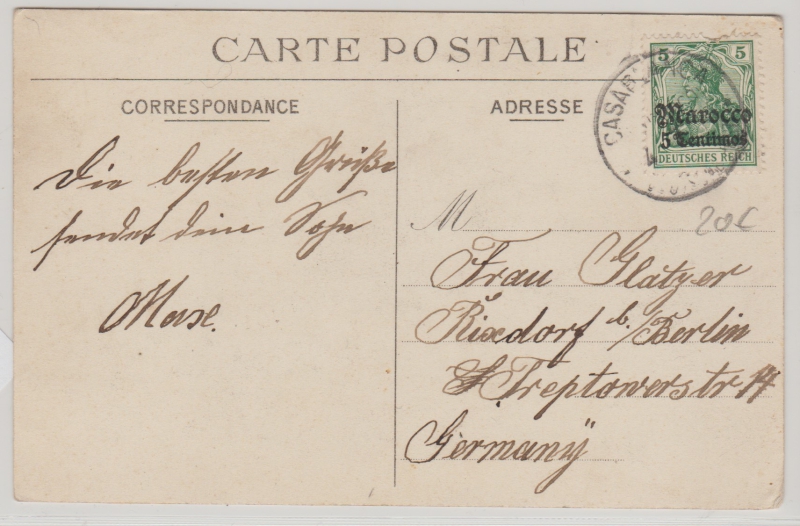 CARTE POSTALE
CORRESPONDANCE
ADRESSE
5 5
Marocco
5 Centimos
DEUTSCHES REICH
CASABLANCA
20 €
Die besten Grüße
sendet dein Sohn
Max.
M
Frau Glatzer
Rixdorf b./Berlin
Treptowerstr 14
Germany